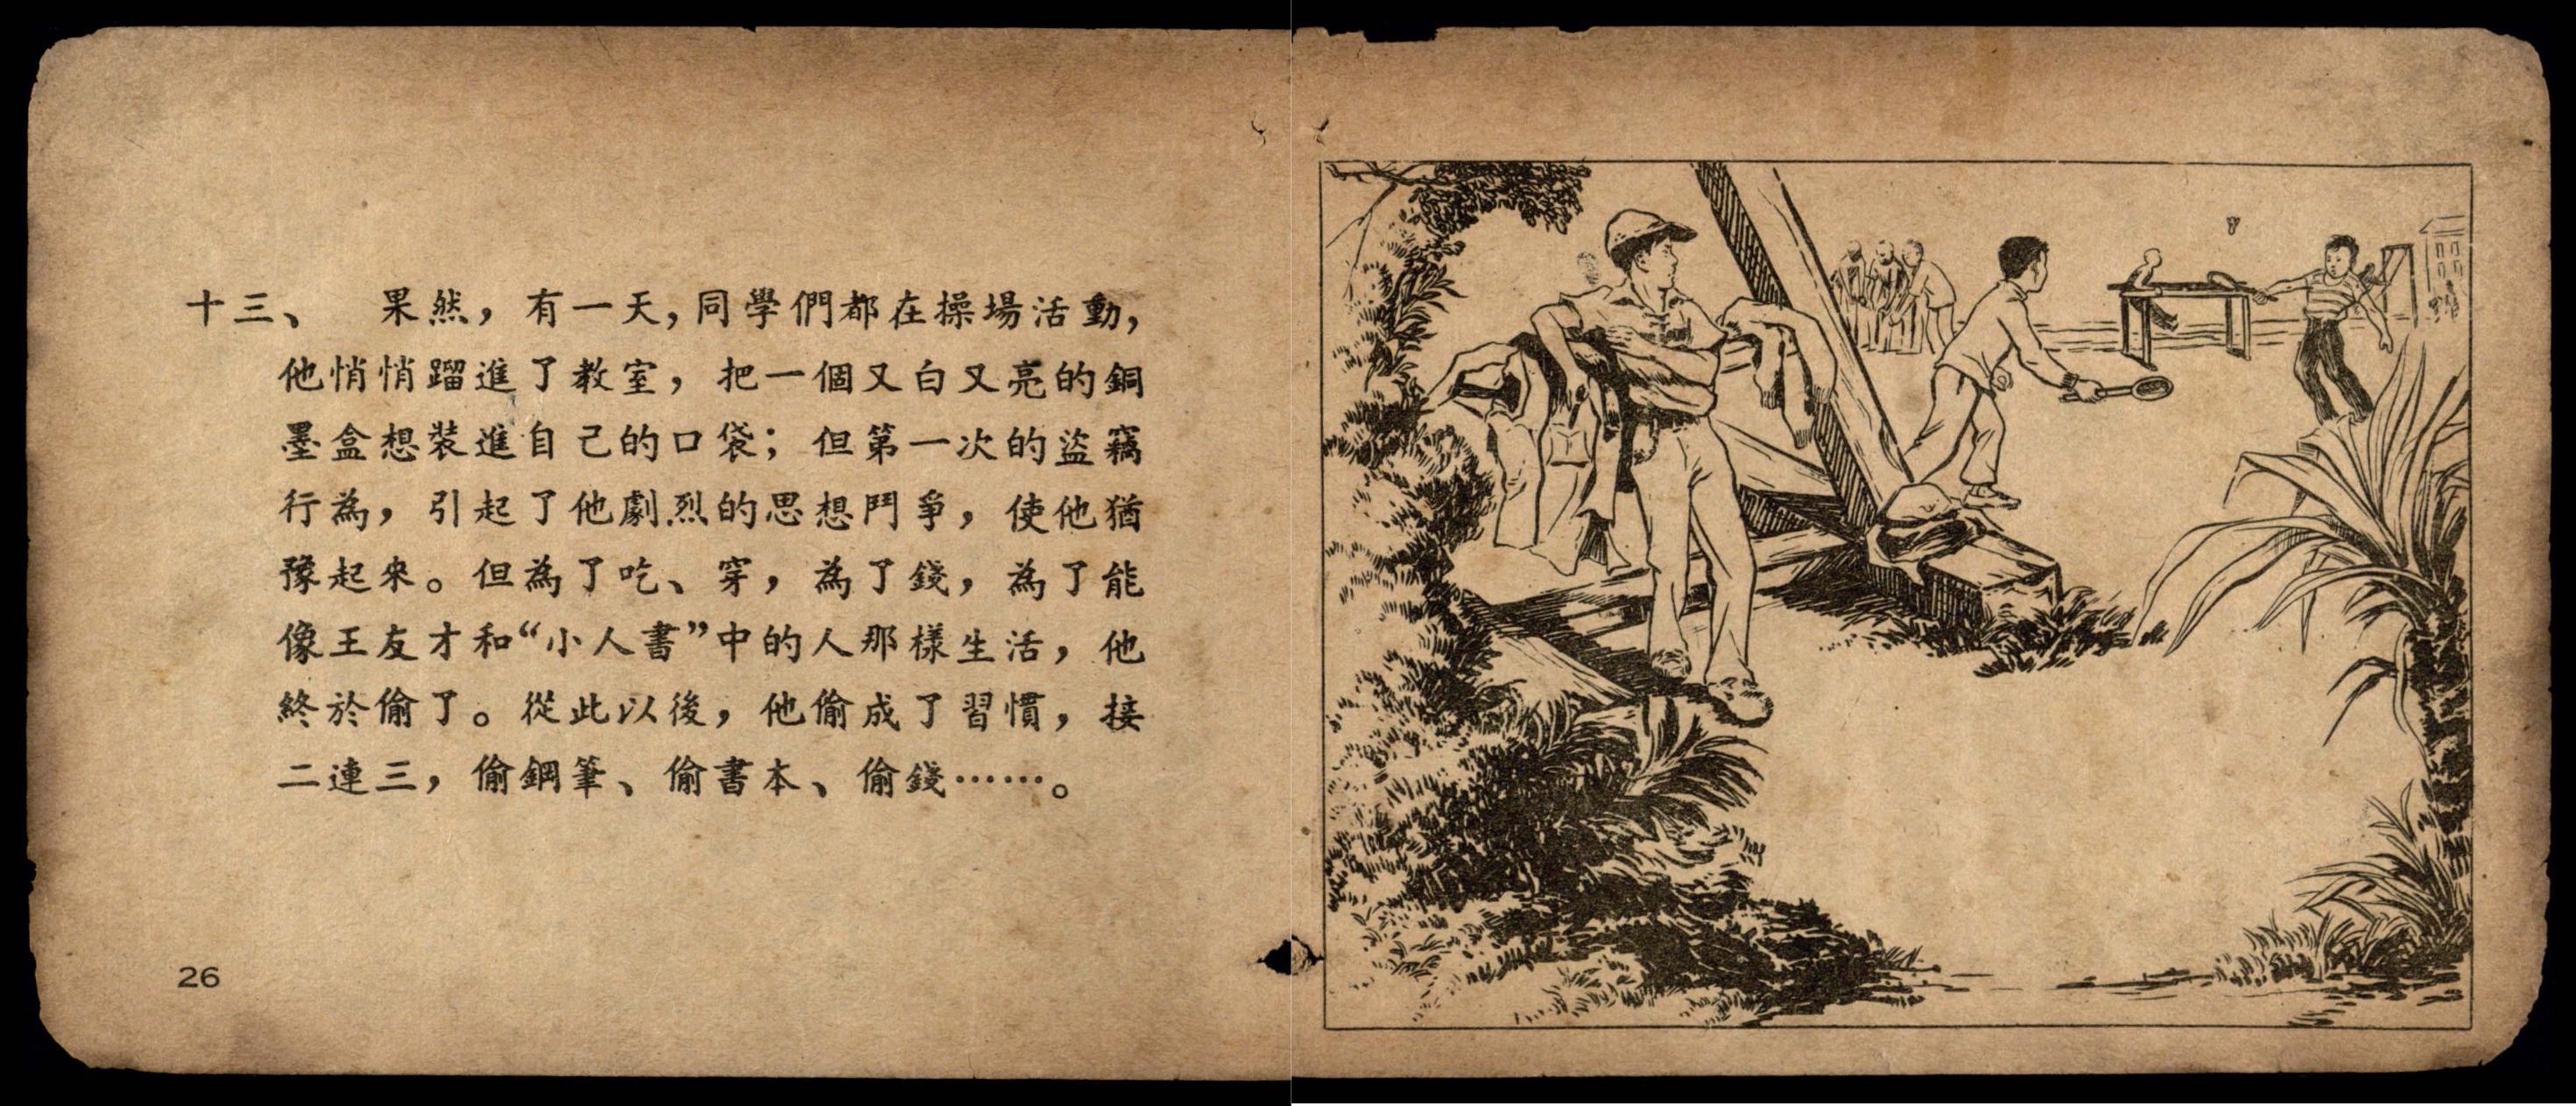 十三、　果然，有一天，同學們都在操場活動，
他悄悄蹓進了教室，把一個又白又亮的銅
墨盒想裝進自己的口袋；但第一次的盜竊
行為，引起了他劇烈的思想鬥爭，使他猶
豫起來。但為了吃、穿，為了錢，為了能
像王友才和“小人書”中的人那樣生活，他
終於偷了。從此以後，他偷成了習慣，接
二連三，偷鋼筆、偷書本、偷錢……。
26